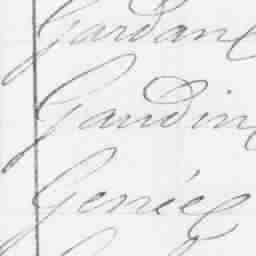 Gardane
Gaudin
Geniée